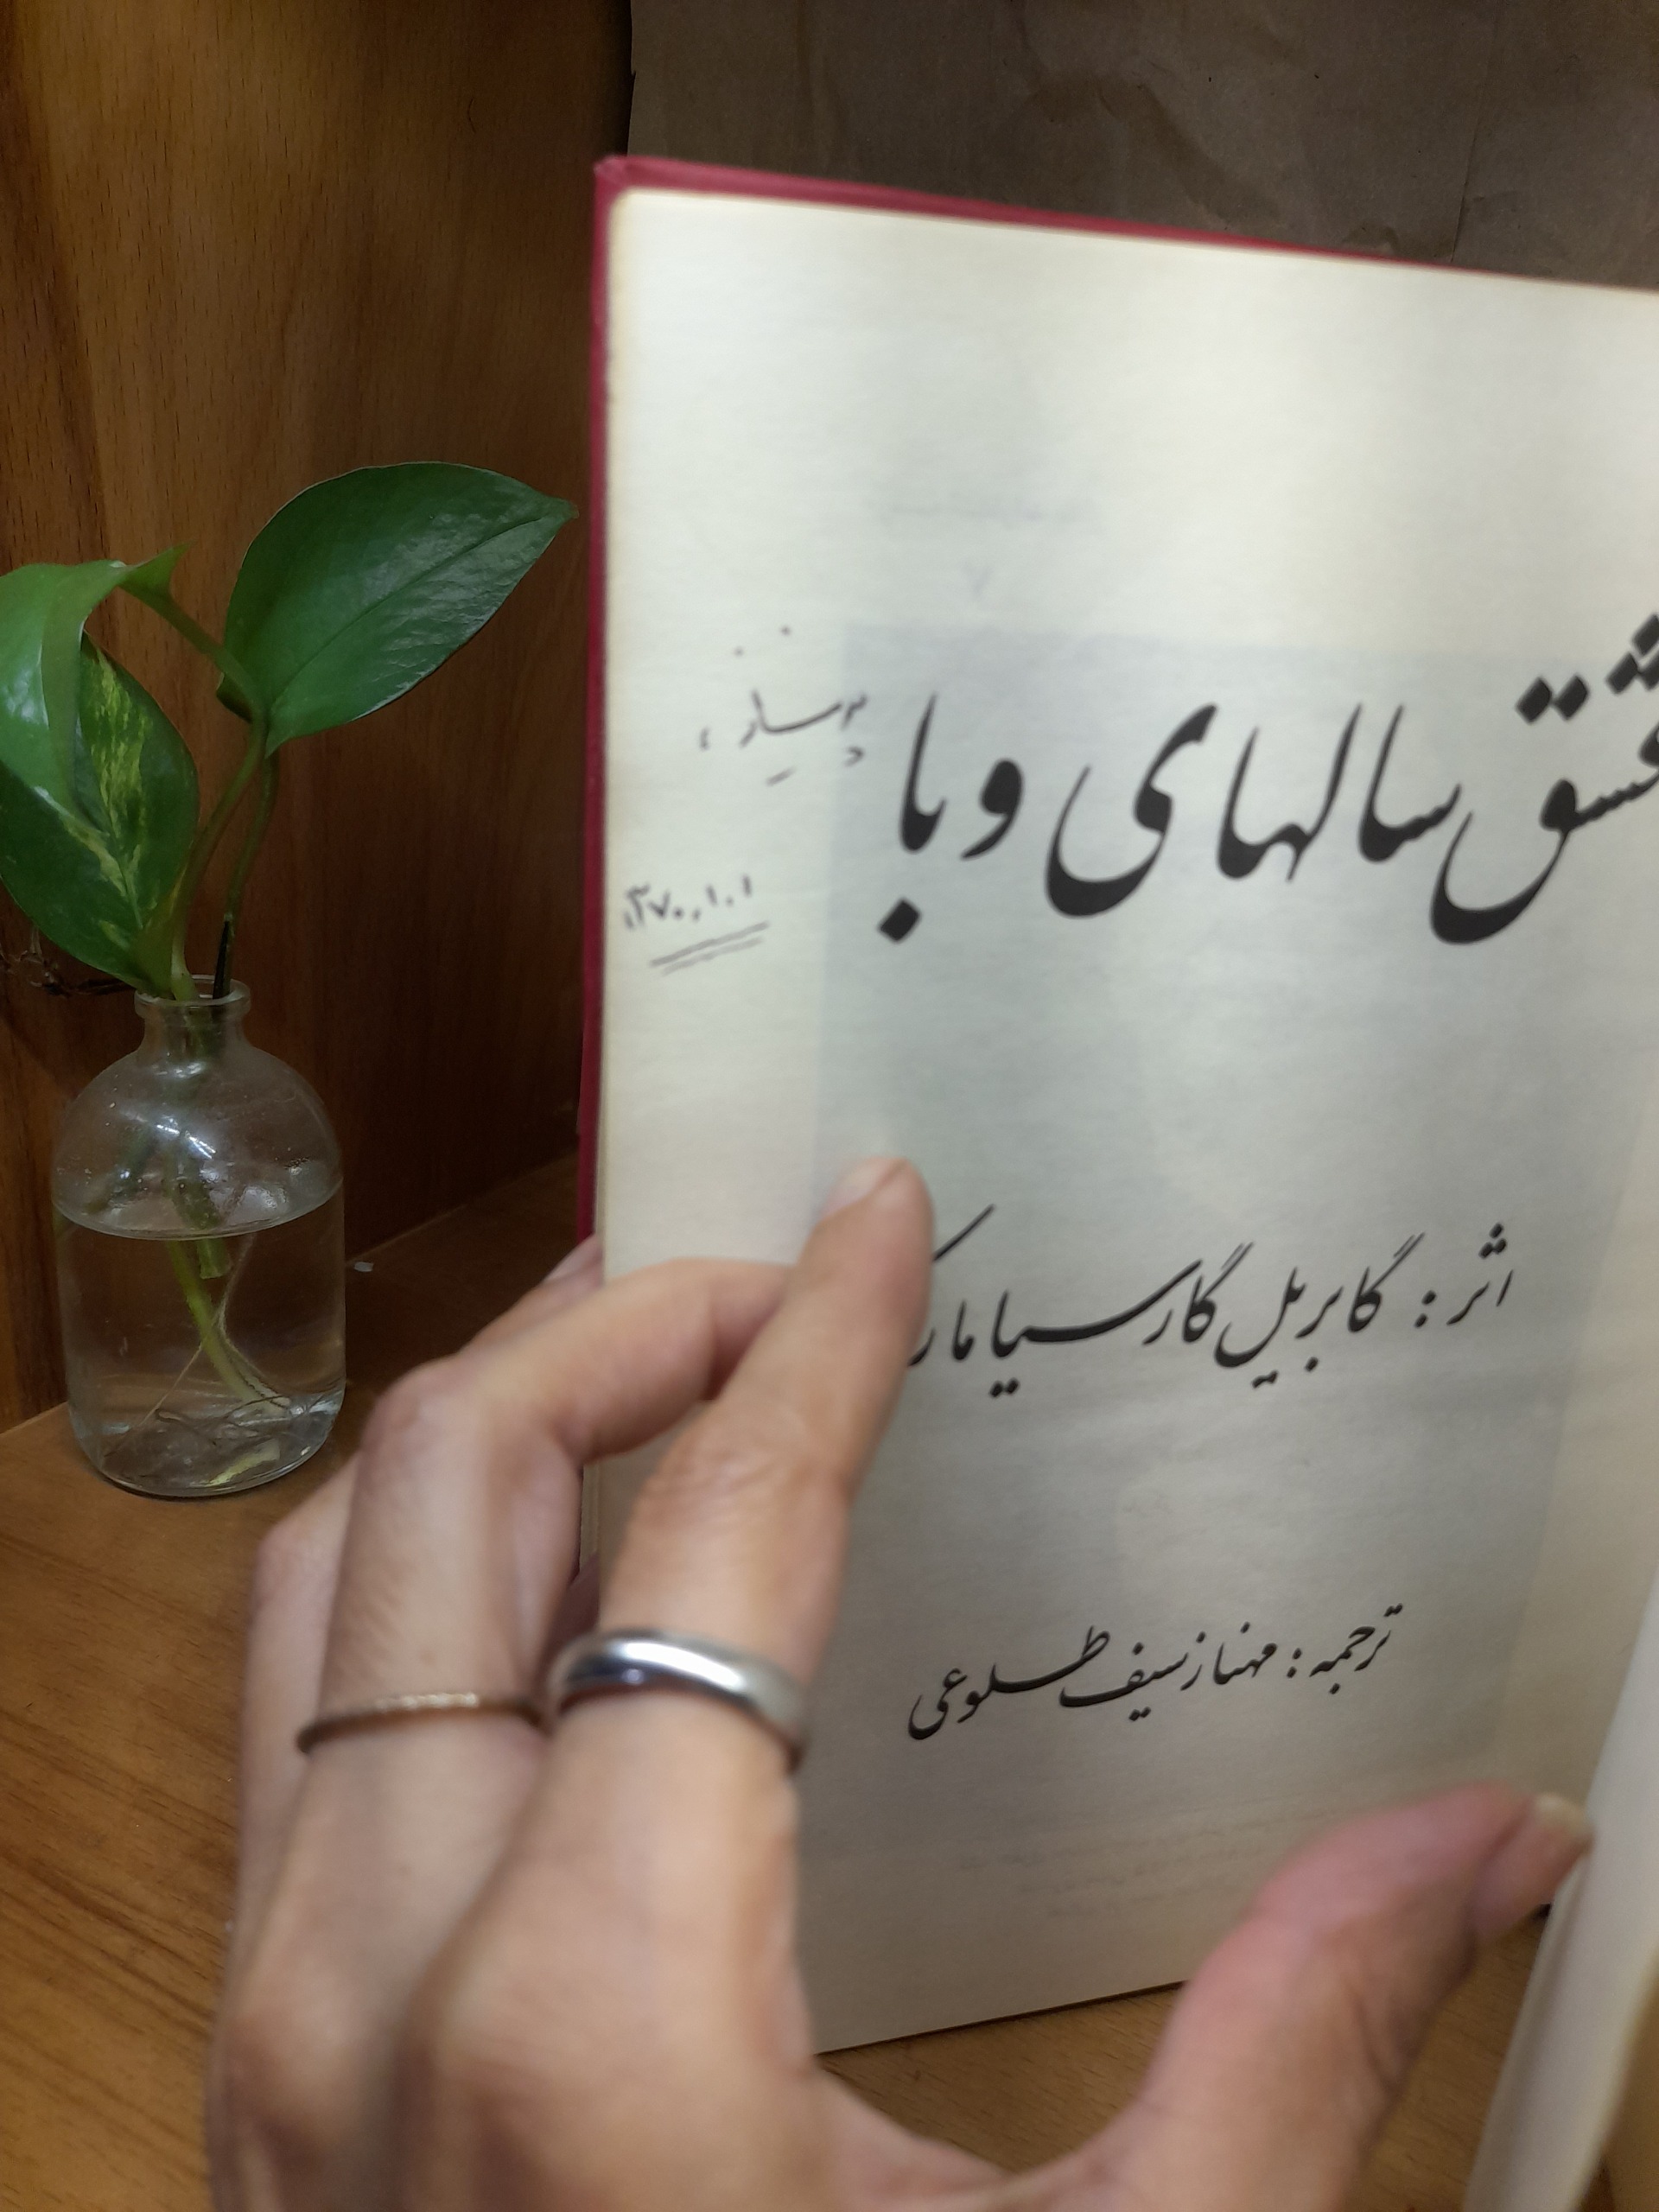 عشق سالهای وبا
۱۳۷۰،۱،۱
اثر : گابریل گارسیا مارک
ترجمه : مهناز سیف طلوعی